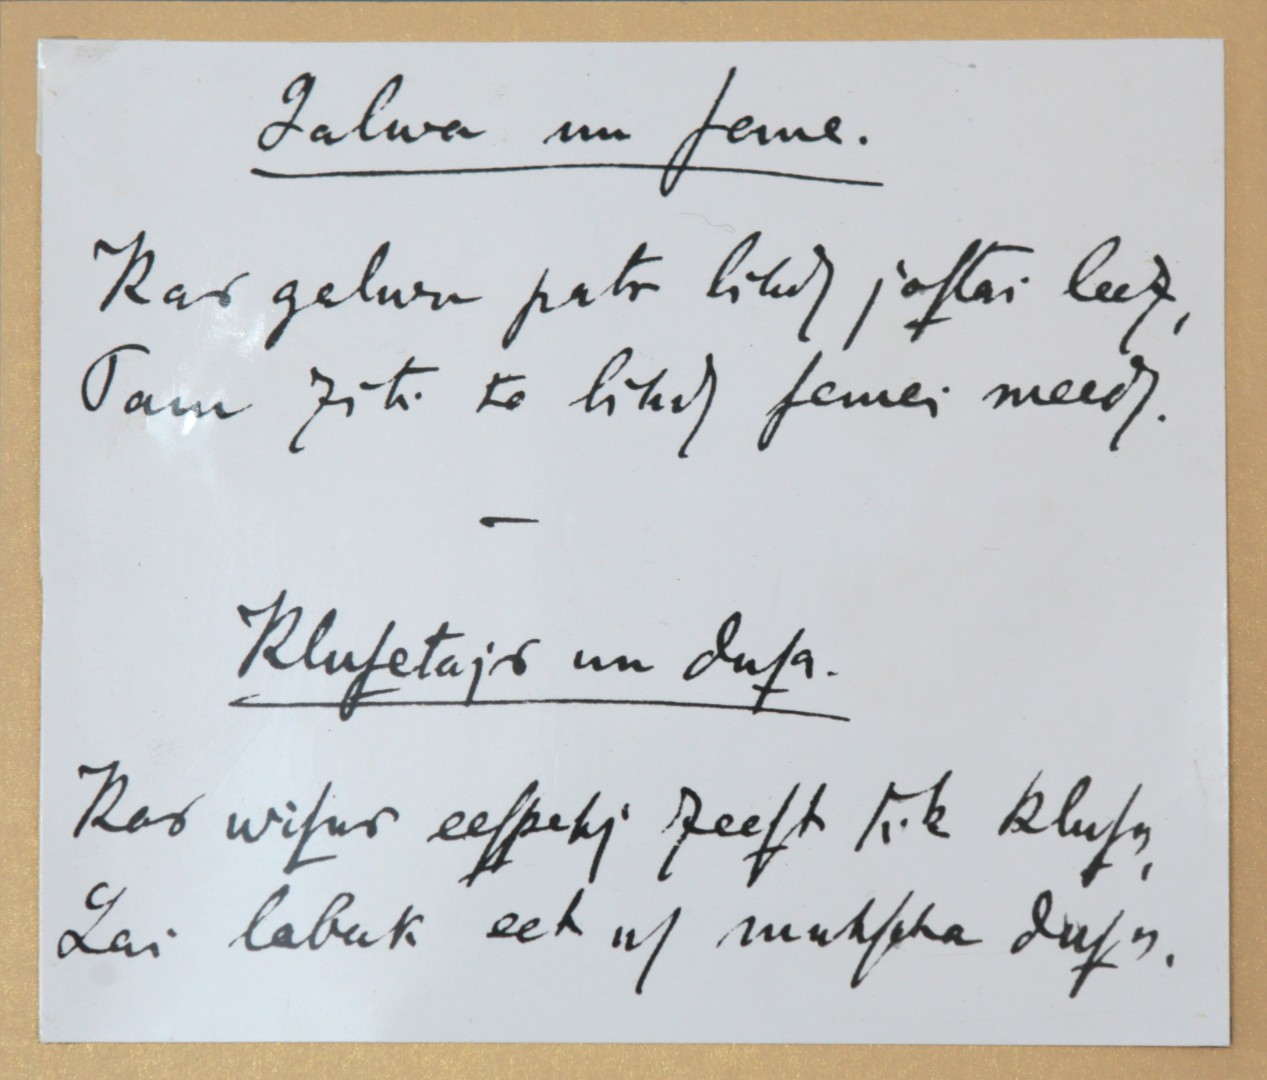 Galwa un ſeme.
Kas galwu pats lihdſ joſtai leez,
Tam ziti to lihdſ ſemei meedſ.
—
Kluſetajs un duſa.
Kas wiſus eeſpehj zeeſt tik kluſu,
Lai labak eet uſ muhſcha duſu.